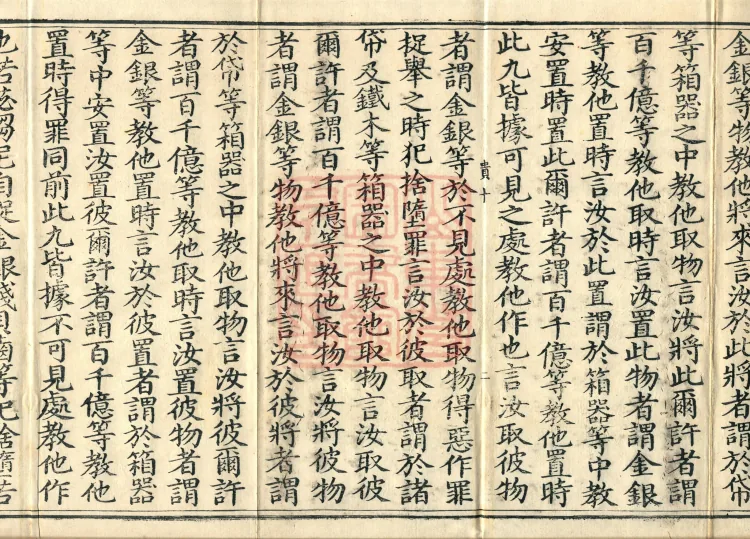 金銀等物教他將來言汝於此將者謂於帒
等箱器之中教他取物言汝將此爾許者謂
百千億等教他取時言汝置此物者謂金銀
等教他置時言汝於此置謂於箱器等中教
安置時置此爾許者謂百千億等教他置時
此九皆據可見之處教他作也言汝取彼物
貴十 二
者謂金銀等於不見處教他取物得惡作罪
捉舉之時犯捨墮罪言汝於彼取者謂於諸
帒及鐵木等箱器之中教他取物言汝取彼
爾許者謂百千億等教他取物言汝將彼物
者謂金銀等物教他將來言汝於彼將者謂
於帒等箱器之中教他取物言汝將彼爾許
者謂百千億等教他取時言汝置彼物者謂
金銀等教他置時言汝於彼置者謂於箱器
等中安置汝置彼爾許者謂百千億等教他
置時得罪同前此九皆據不可見處教他作
也若苾芻尼自捉金銀錢貝齒等犯捨墮若